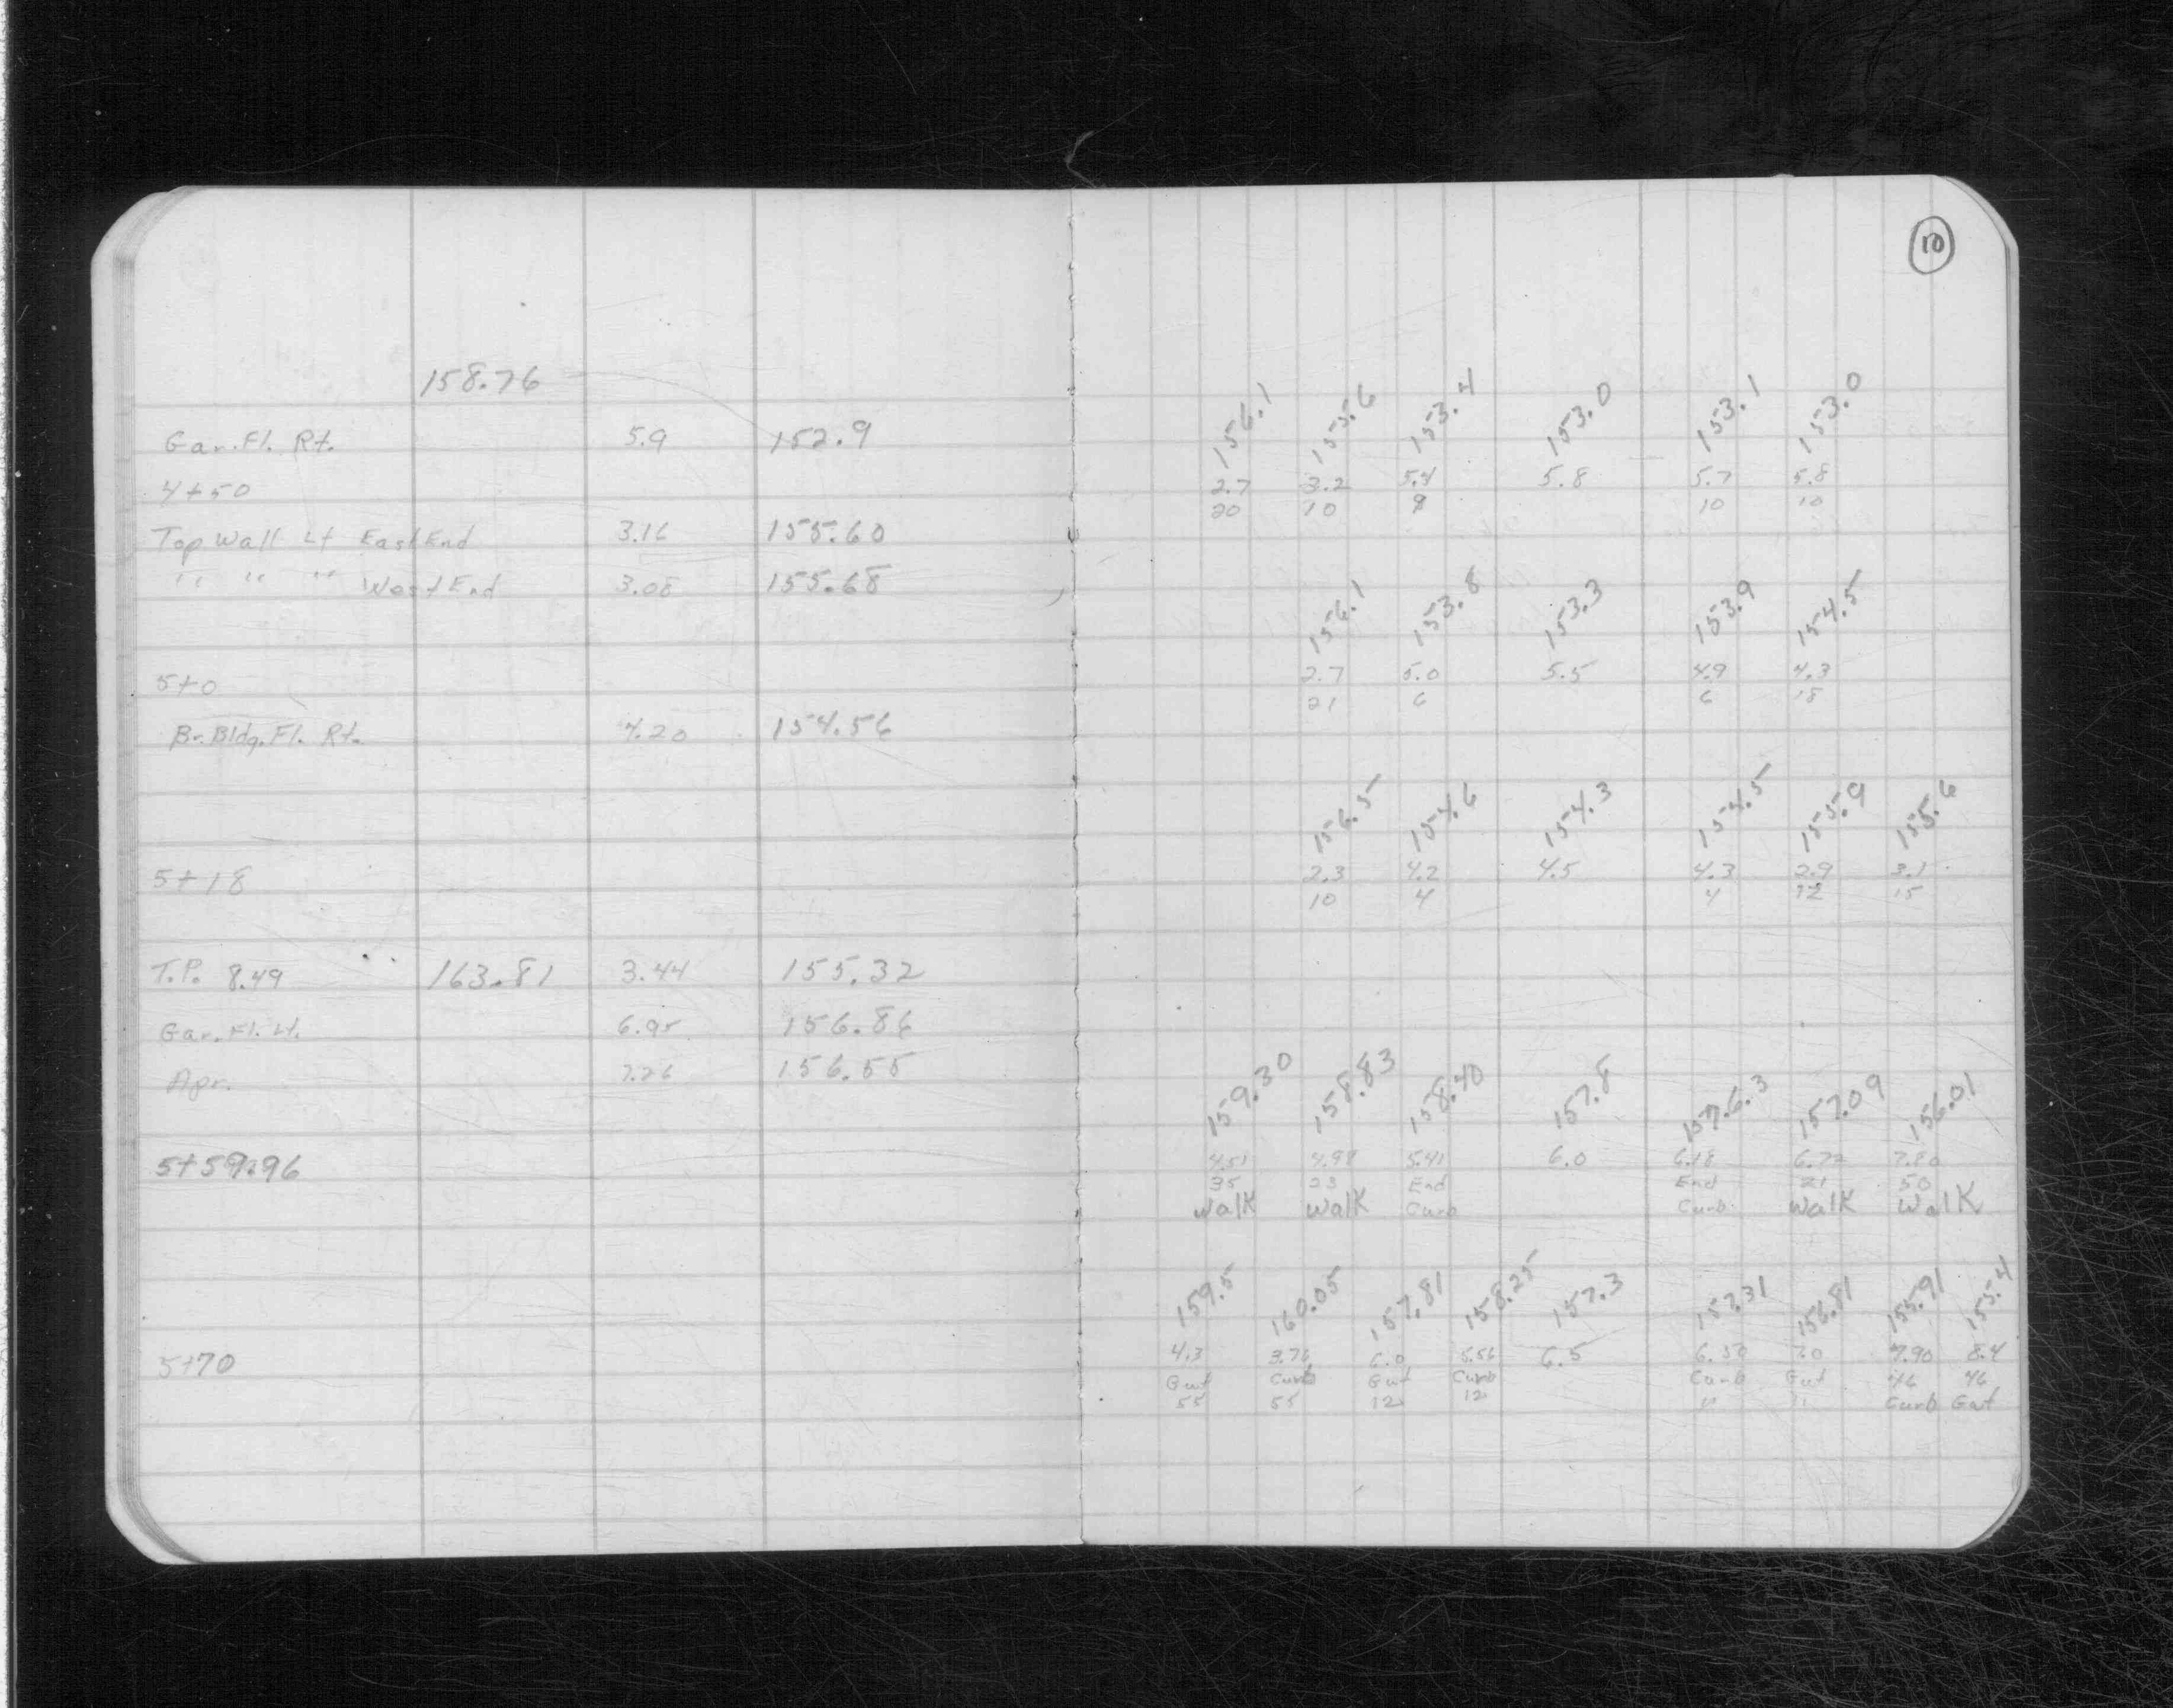 10
158.76
Gar. Fl. Rt. 5.9 152.9
4+50
Top Wall Lt East End 3.16 155.60
" " " West End 3.08 155.68
5+0
Br. Bldg. Fl. Rt. 4.20 154.56
5+18
T.P. 8.49 163.81 3.44 155.32
Gar. Fl. Lt. 6.95 156.86
Apr. 7.26 156.55
5+59.96
5+70
156.1 155.6 153.4 153.0 153.1 153.0
2.7 3.2 5.4 5.8 5.7 5.8
20 10 9 10 10
156.1 153.8 153.3 153.9 154.5
2.7 5.0 5.5 4.9 4.3
21 6 6 18
156.5 154.6 154.3 154.5 155.9 155.6
2.3 4.2 4.5 4.3 2.9 3.1
10 4 4 12 15
159.30 158.83 158.40 157.8 157.6.3 157.09 156.01
4.51 4.98 5.41 6.0 6.18 6.72 7.80
35 23 End End 21 50
Walk Walk Curb Curb Walk Walk
159.5 160.05 157.81 158.25 157.3 157.31 156.81 155.91 155.4
4.3 3.76 6.0 5.56 6.5 6.50 7.0 7.90 8.4
Gut Curb Gut Curb Curb Gut 46 46
55 55 12 12 11 11 Curb Gut